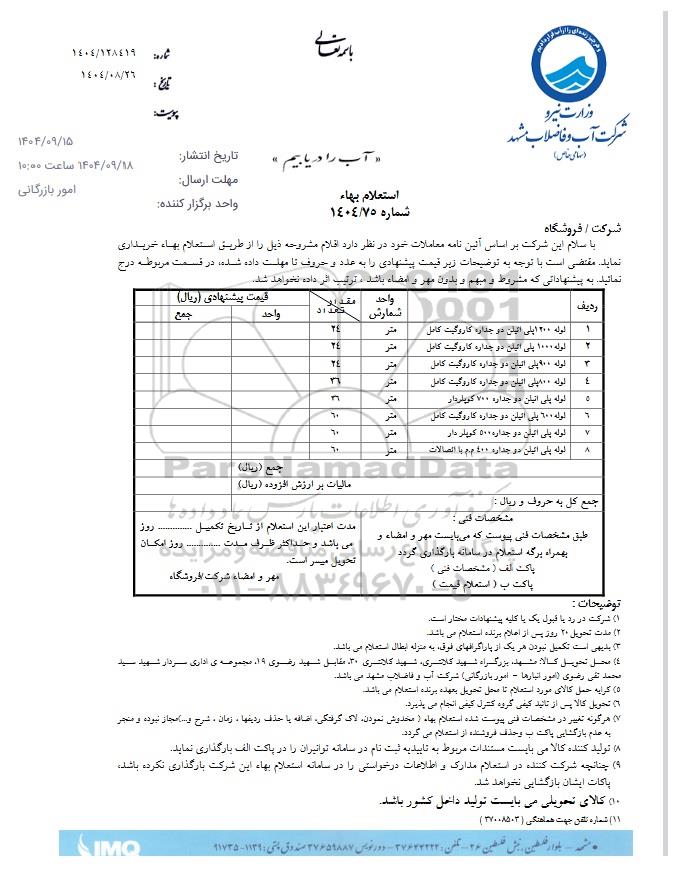 باسمه تعالی
شماره: ۱٤۰٤/۱۲۸٤۱۹
تاریخ: ۱٤۰٤/۰۸/۲٦
پیوست:
وزارت نیرو
شرکت آب و فاضلاب مشهد
(سهامی خاص)
« آب را دریابیم »
تاریخ انتشار: ۱۴۰۴/۰۹/۱۵
مهلت ارسال: ۱۴۰۴/۰۹/۱۸ ساعت ۱۰:۰۰
واحد برگزار کننده: امور بازرگانی
استعلام بهاء
شماره ۱٤۰٤/۷۵
شرکت / فروشگاه
با سلام این شرکت بر اساس آئین نامه معاملات خود در نظر دارد اقلام مشروحه ذیل را از طریق استعلام بهاء خریداری
نماید. مقتضی است با توجه به توضیحات زیر قیمت پیشنهادی را به عدد و حروف تا مهلت داده شده، در قسمت مربوطه درج
نمائید. به پیشنهاداتی که مشروط و مبهم و بدون مهر و امضاء باشد ، ترتیب اثر داده نخواهد شد.
ردیف واحد شمارش مقدار تعداد قیمت پیشنهادی (ریال) واحد جمع
۱ لوله ۱۲۰۰پلی اتیلن دو جداره کاروگیت کامل متر ۲٤
۲ لوله ۱۰۰۰ پلی اتیلن دو جداره کاروگیت کامل متر ۲٤
۳ لوله ۹۰۰پلی اتیلن دو جداره کاروگیت کامل متر ۲٤
٤ لوله ۸۰۰پلی اتیلن دو جداره کاروگیت کامل متر ۳٦
۵ لوله پلی اتیلن دو جداره ۷۰۰ کوپلردار متر ۳٦
٦ لوله ٦۰۰ پلی اتیلن دو جداره کاروگیت کامل متر ٦۰
۷ لوله پلی اتیلن دو جداره۵۰۰ کوپلر دار متر ٦۰
۸ لوله پلی اتیلن دو جداره ٤۰۰ م.م با اتصالات متر ٦۰
جمع (ریال)
مالیات بر ارزش افزوده (ریال)
جمع کل به حروف و ریال :
مشخصات فنی :
طبق مشخصات فنی پیوست که می‌بایست مهر و امضاء و
بهمراه برگه استعلام در سامانه بارگذاری گردد
پاکت الف ( مشخصات فنی )
پاکت ب ( استعلام قیمت )
مدت اعتبار این استعلام از تاریخ تکمیل .............. روز
می باشد و حداکثر ظرف مدت .............. روز امکان
تحویل میسر است.
مهر و امضاء شرکت/فروشگاه
ParsNamadData
۰۲۱-۸۸۳۴۹۶۷۰-۵
توضیحات :
۱) شرکت در رد یا قبول یک یا کلیه پیشنهادات مختار است.
۲) مدت تحویل ۲۰ روز پس از اعلام برنده استعلام می باشد.
۳) بدیهی است تکمیل نبودن هر یک از پاراگرافهای فوق، به منزله ابطال استعلام می باشد.
٤) محل تحویل کالا: مشهد، بزرگراه شهید کلانتری، شهید کلانتری ۳۰، مقابل شهید رضوی ۱۹، مجموعه ی اداری سردار شهید سید
محمد تقی رضوی (امور انبارها – امور بازرگانی) شرکت آب و فاضلاب مشهد می باشد.
۵) کرایه حمل کالای مورد استعلام تا محل تحویل بعهده برنده استعلام می باشد.
٦) تحویل کالا پس از تائید کیفی گروه کنترل کیفی انجام می پذیرد.
۷) هرگونه تغییر در مشخصات فنی پیوست شده استعلام بهاء ( مخدوش نمودن، لاک گرفتگی، اضافه یا حذف ردیفها ، زمان ، شرح و...)مجاز نبوده و منجر
به عدم بازگشایی پاکت ب وحذف فروشنده از استعلام می گردد.
۸) تولید کننده کالا می بایست مستندات مربوط به تاییدیه ثبت نام در سامانه توانیران را در پاکت الف بارگذاری نماید.
۹) چنانچه شرکت کننده در استعلام مدارک و اطلاعات درخواستی را در سامانه استعلام بهاء این شرکت بارگذاری نکرده باشد،
پاکات ایشان بازگشایی نخواهد شد.
۱۰) کالای تحویلی می بایست تولید داخل کشور باشد.
۱۱) شماره تلفن جهت هماهنگی ( ۳۷۰۰۸۵۰۳ )
مشهد – بلوار فلسطین، نبش فلسطین ۲۶ – تلفن : ۳۷۶۴۴۲۲۲ – دورنویس ۳۷۶۵۹۸۸۷ صندوق پستی : ۱۱۳۹-۹۱۷۳۵
IMQ